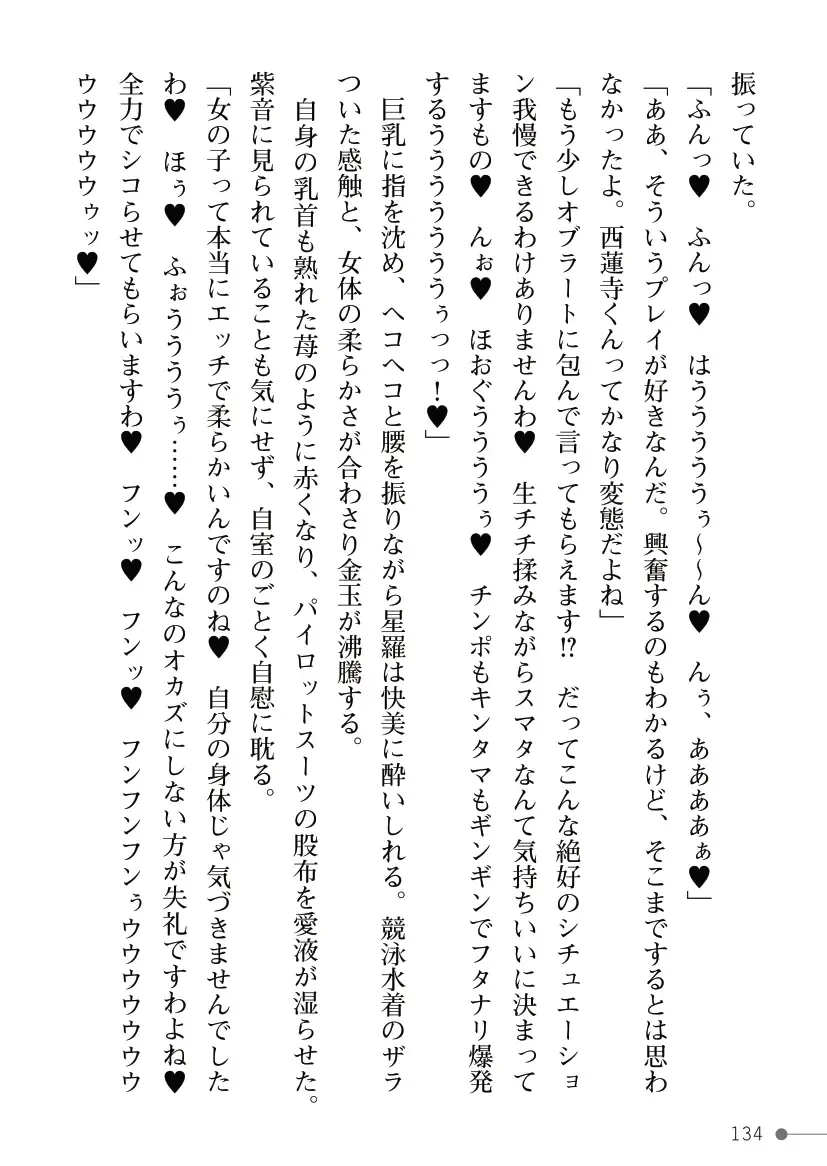 振っていた。
「ふんっ♥　ふんっ♥　はうううううぅ～～ん♥　んぅ、ああああぁ♥」
「ああ、そういうプレイが好きなんだ。興奮するのもわかるけど、そこまでするとは思わ
なかったよ。西蓮寺くんってかなり変態だよね」
「もう少しオブラートに包んで言ってもらえます⁉　だってこんな絶好のシチュエーショ
ン我慢できるわけありませんわ♥　生チチ揉みながらスマタなんて気持ちいいに決まって
ますもの♥　んぉ♥　ほおぐううううぅ♥　チンポもキンタマもギンギンでフタナリ爆発
するうううううううぅっっ！♥」
　巨乳に指を沈め、ヘコヘコと腰を振りながら星羅は快美に酔いしれる。競泳水着のザラ
ついた感触と、女体の柔らかさが合わさり金玉が沸騰する。
　自身の乳首も熟れた苺のように赤くなり、パイロットスーツの股布を愛液が湿らせた。
紫音に見られていることも気にせず、自室のごとく自慰に耽る。
「女の子って本当にエッチで柔らかいんですのね♥　自分の身体じゃ気づきませんでした
わ♥　ほぅ♥　ふぉうううぅ……♥　こんなのオカズにしない方が失礼ですわよね♥
全力でシコらせてもらいますわ♥　フンッ♥　フンッ♥　フンフンフンぅウウウウウウウ
ウウウウウゥッ♥」
134